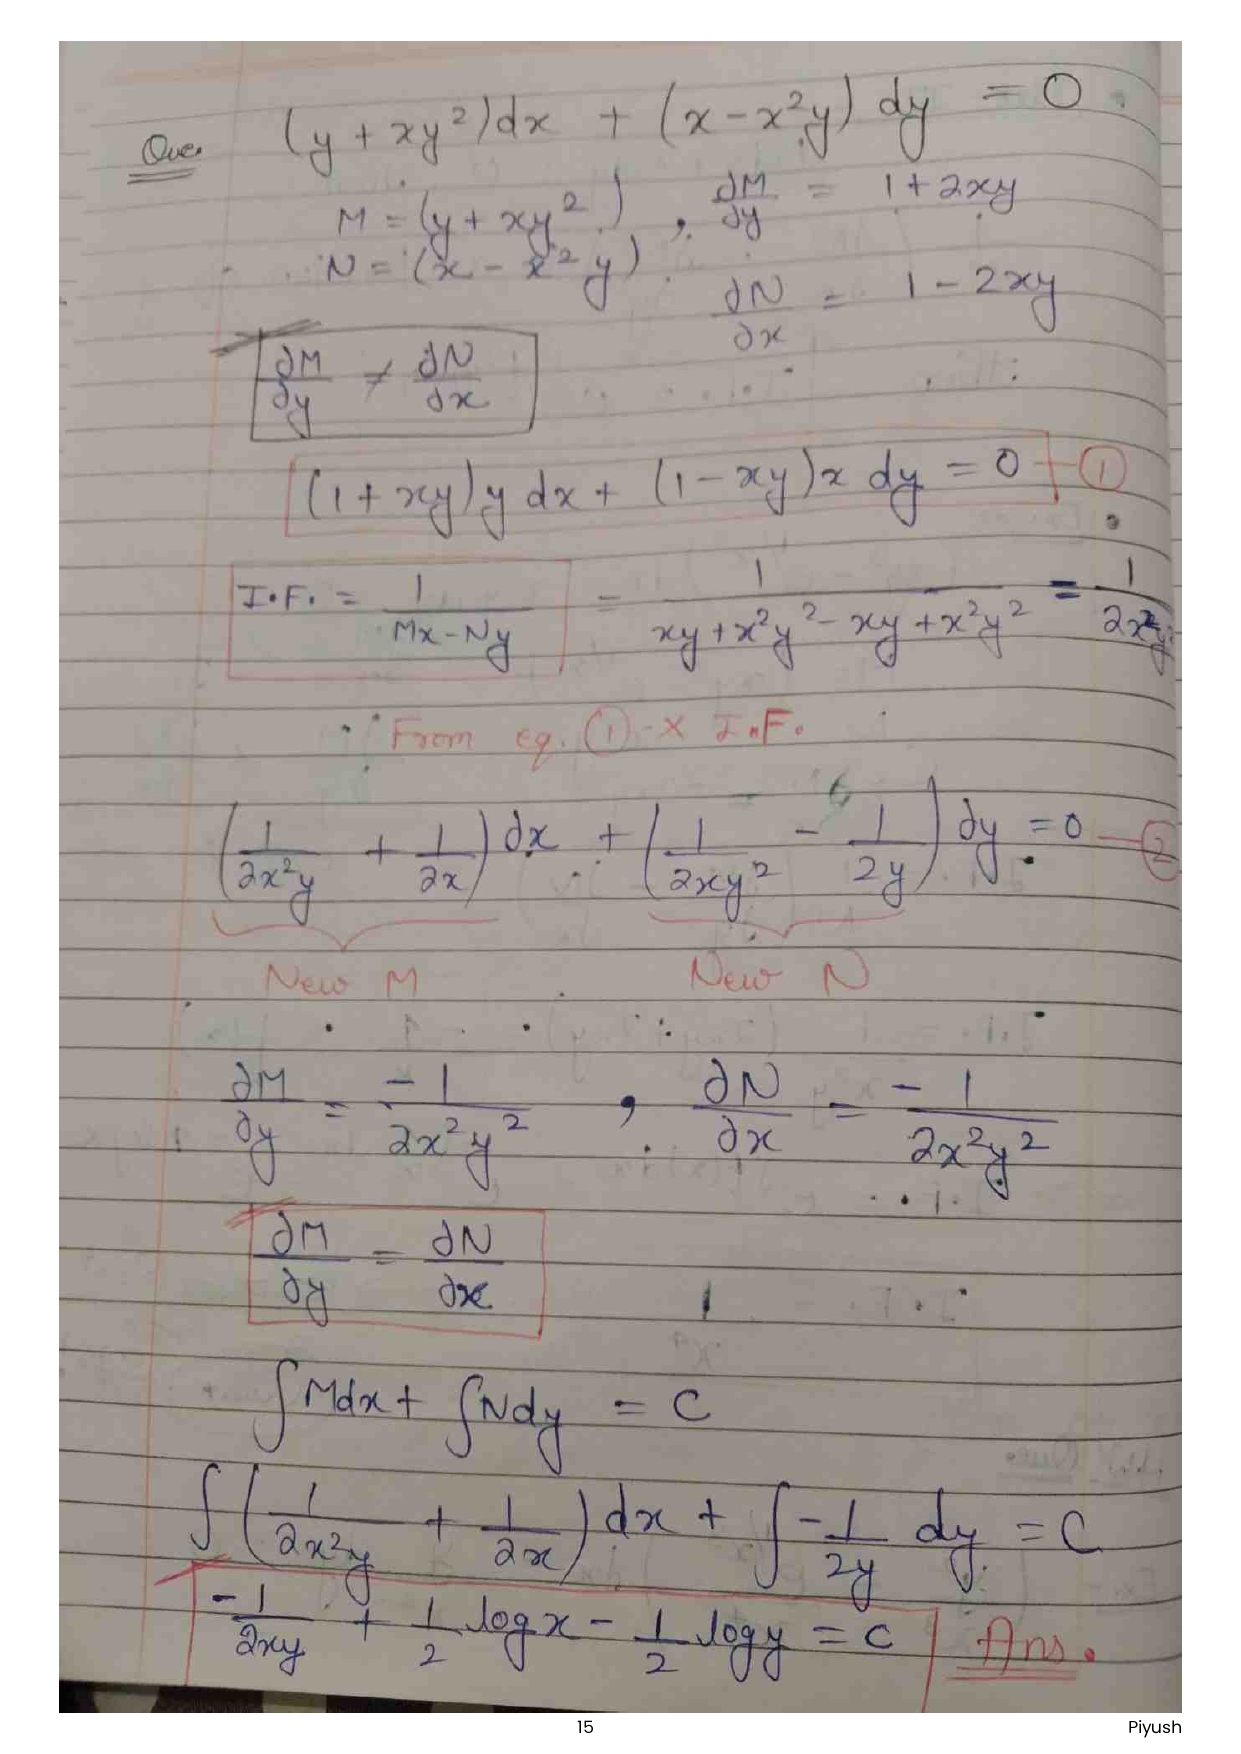 Que. (y + xy²)dx + (x - x²y) dy = 0
M = (y + xy²) , ∂M/∂y = 1 + 2xy
N = (x - x²y)
∂N/∂x = 1 - 2xy
∂M/∂y ≠ ∂N/∂x
(1 + xy)y dx + (1 - xy)x dy = 0 — ①
I.F. = 1/(Mx - Ny) = 1/(xy + x²y² - xy + x²y²) = 1/(2x²y²)
From eq. ① × I.F.
(1/(2x²y) + 1/(2x)) dx + (1/(2xy²) - 1/(2y)) dy = 0 — ②
New M New N
∂M/∂y = -1/(2x²y²) , ∂N/∂x = -1/(2x²y²)
∂M/∂y = ∂N/∂x
∫Mdx + ∫Ndy = C
∫(1/(2x²y) + 1/(2x)) dx + ∫-1/(2y) dy = C
-1/(2xy) + 1/2 log x - 1/2 log y = C Ans.
15 Piyush